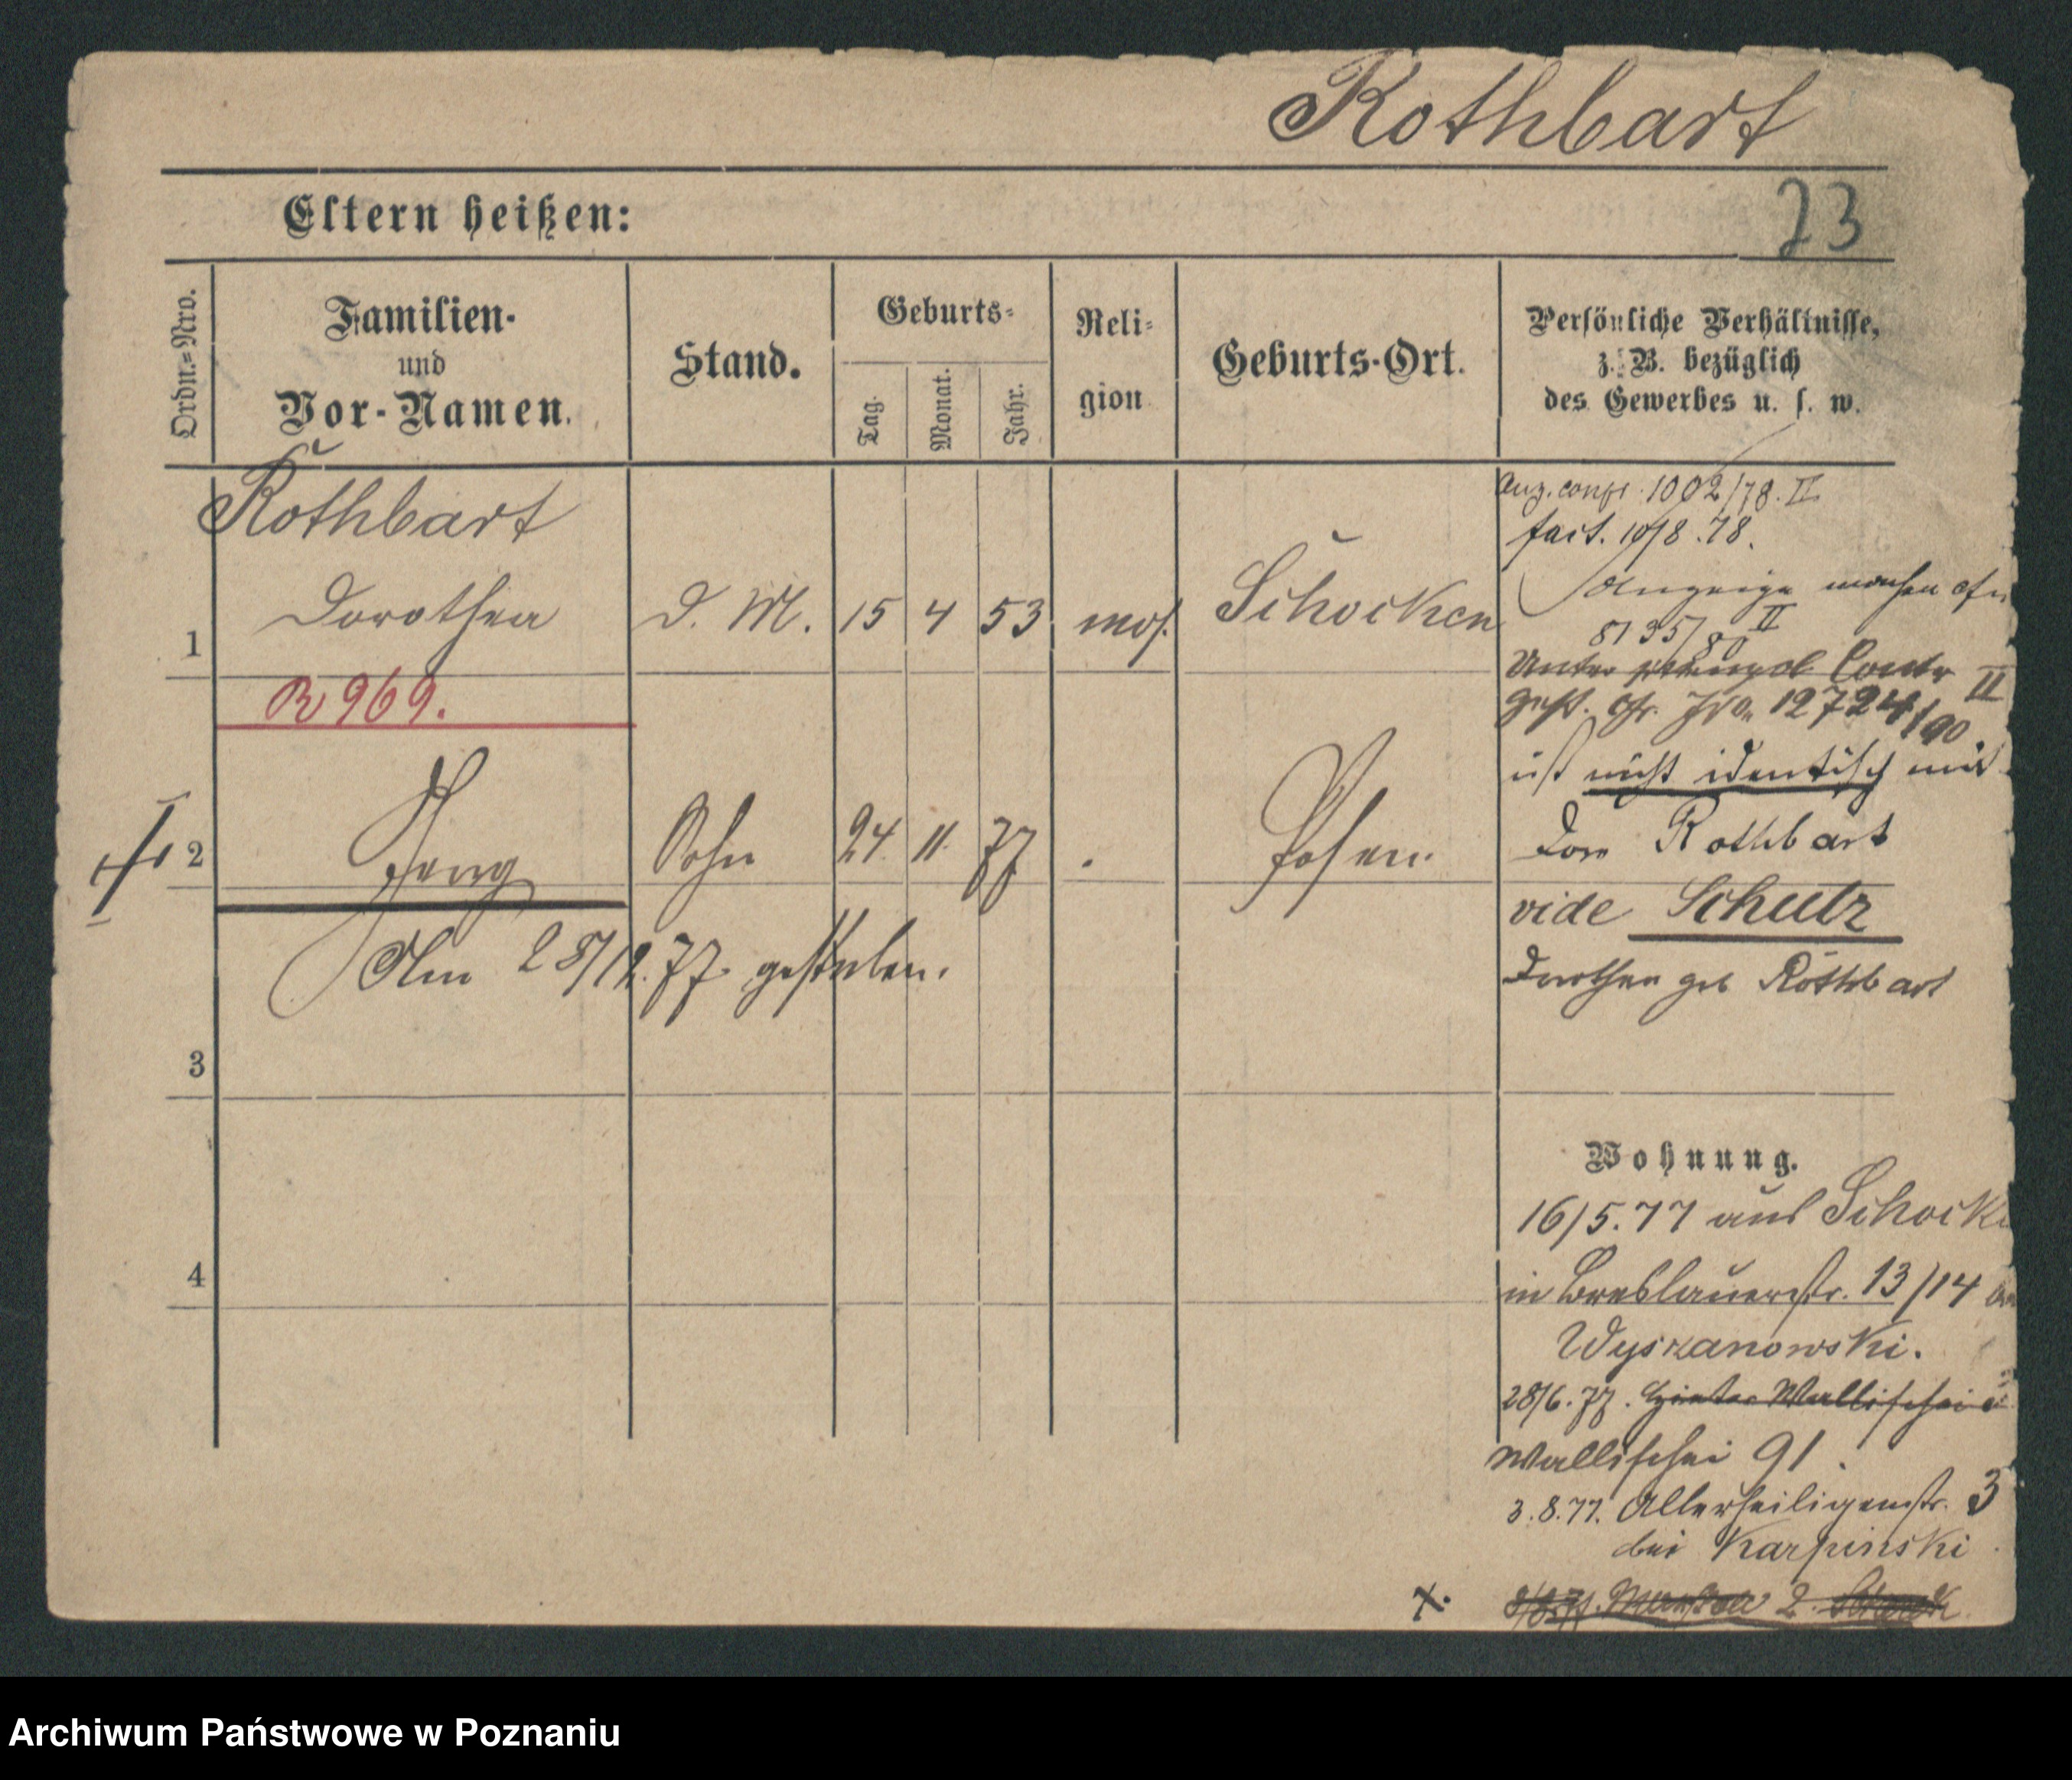 Rothbart
73
Eltern heißen:
Ordn.=Nro.
Familien-
und
Vor-Namen.
Stand.
Geburts=
Tag.
Monat.
Jahr.
Reli=
gion
Geburts-Ort.
Persönliche Verhältnisse,
z. B. bezüglich
des Gewerbes u. s. w.
Rothbart
Dorothea
1
D. M. 15 4 53 mos. Schocken
R 969.
2
Sohn 24. 11. 77 Posen.
Am 28/12. 77 gestorben.
3
4
1002/78. II
fact. 10/8. 78.
Anzeige machen cfr
8135/80 II
Unter Contr II
12724/90
ist nicht identisch mit
Dor Rothbart
vide Schulz
Dorothea geb Rothbart
Wohnung.
16/5. 77 aus Schocke
in Breslauerstr. 13/14
Wyszanowski.
28/6. 77. Hinter Wallischei
Wallischei 91.
3. 8. 77. Allerheiligenstr. 3
bei Karpinski
x. 2.
Archiwum Państwowe w Poznaniu